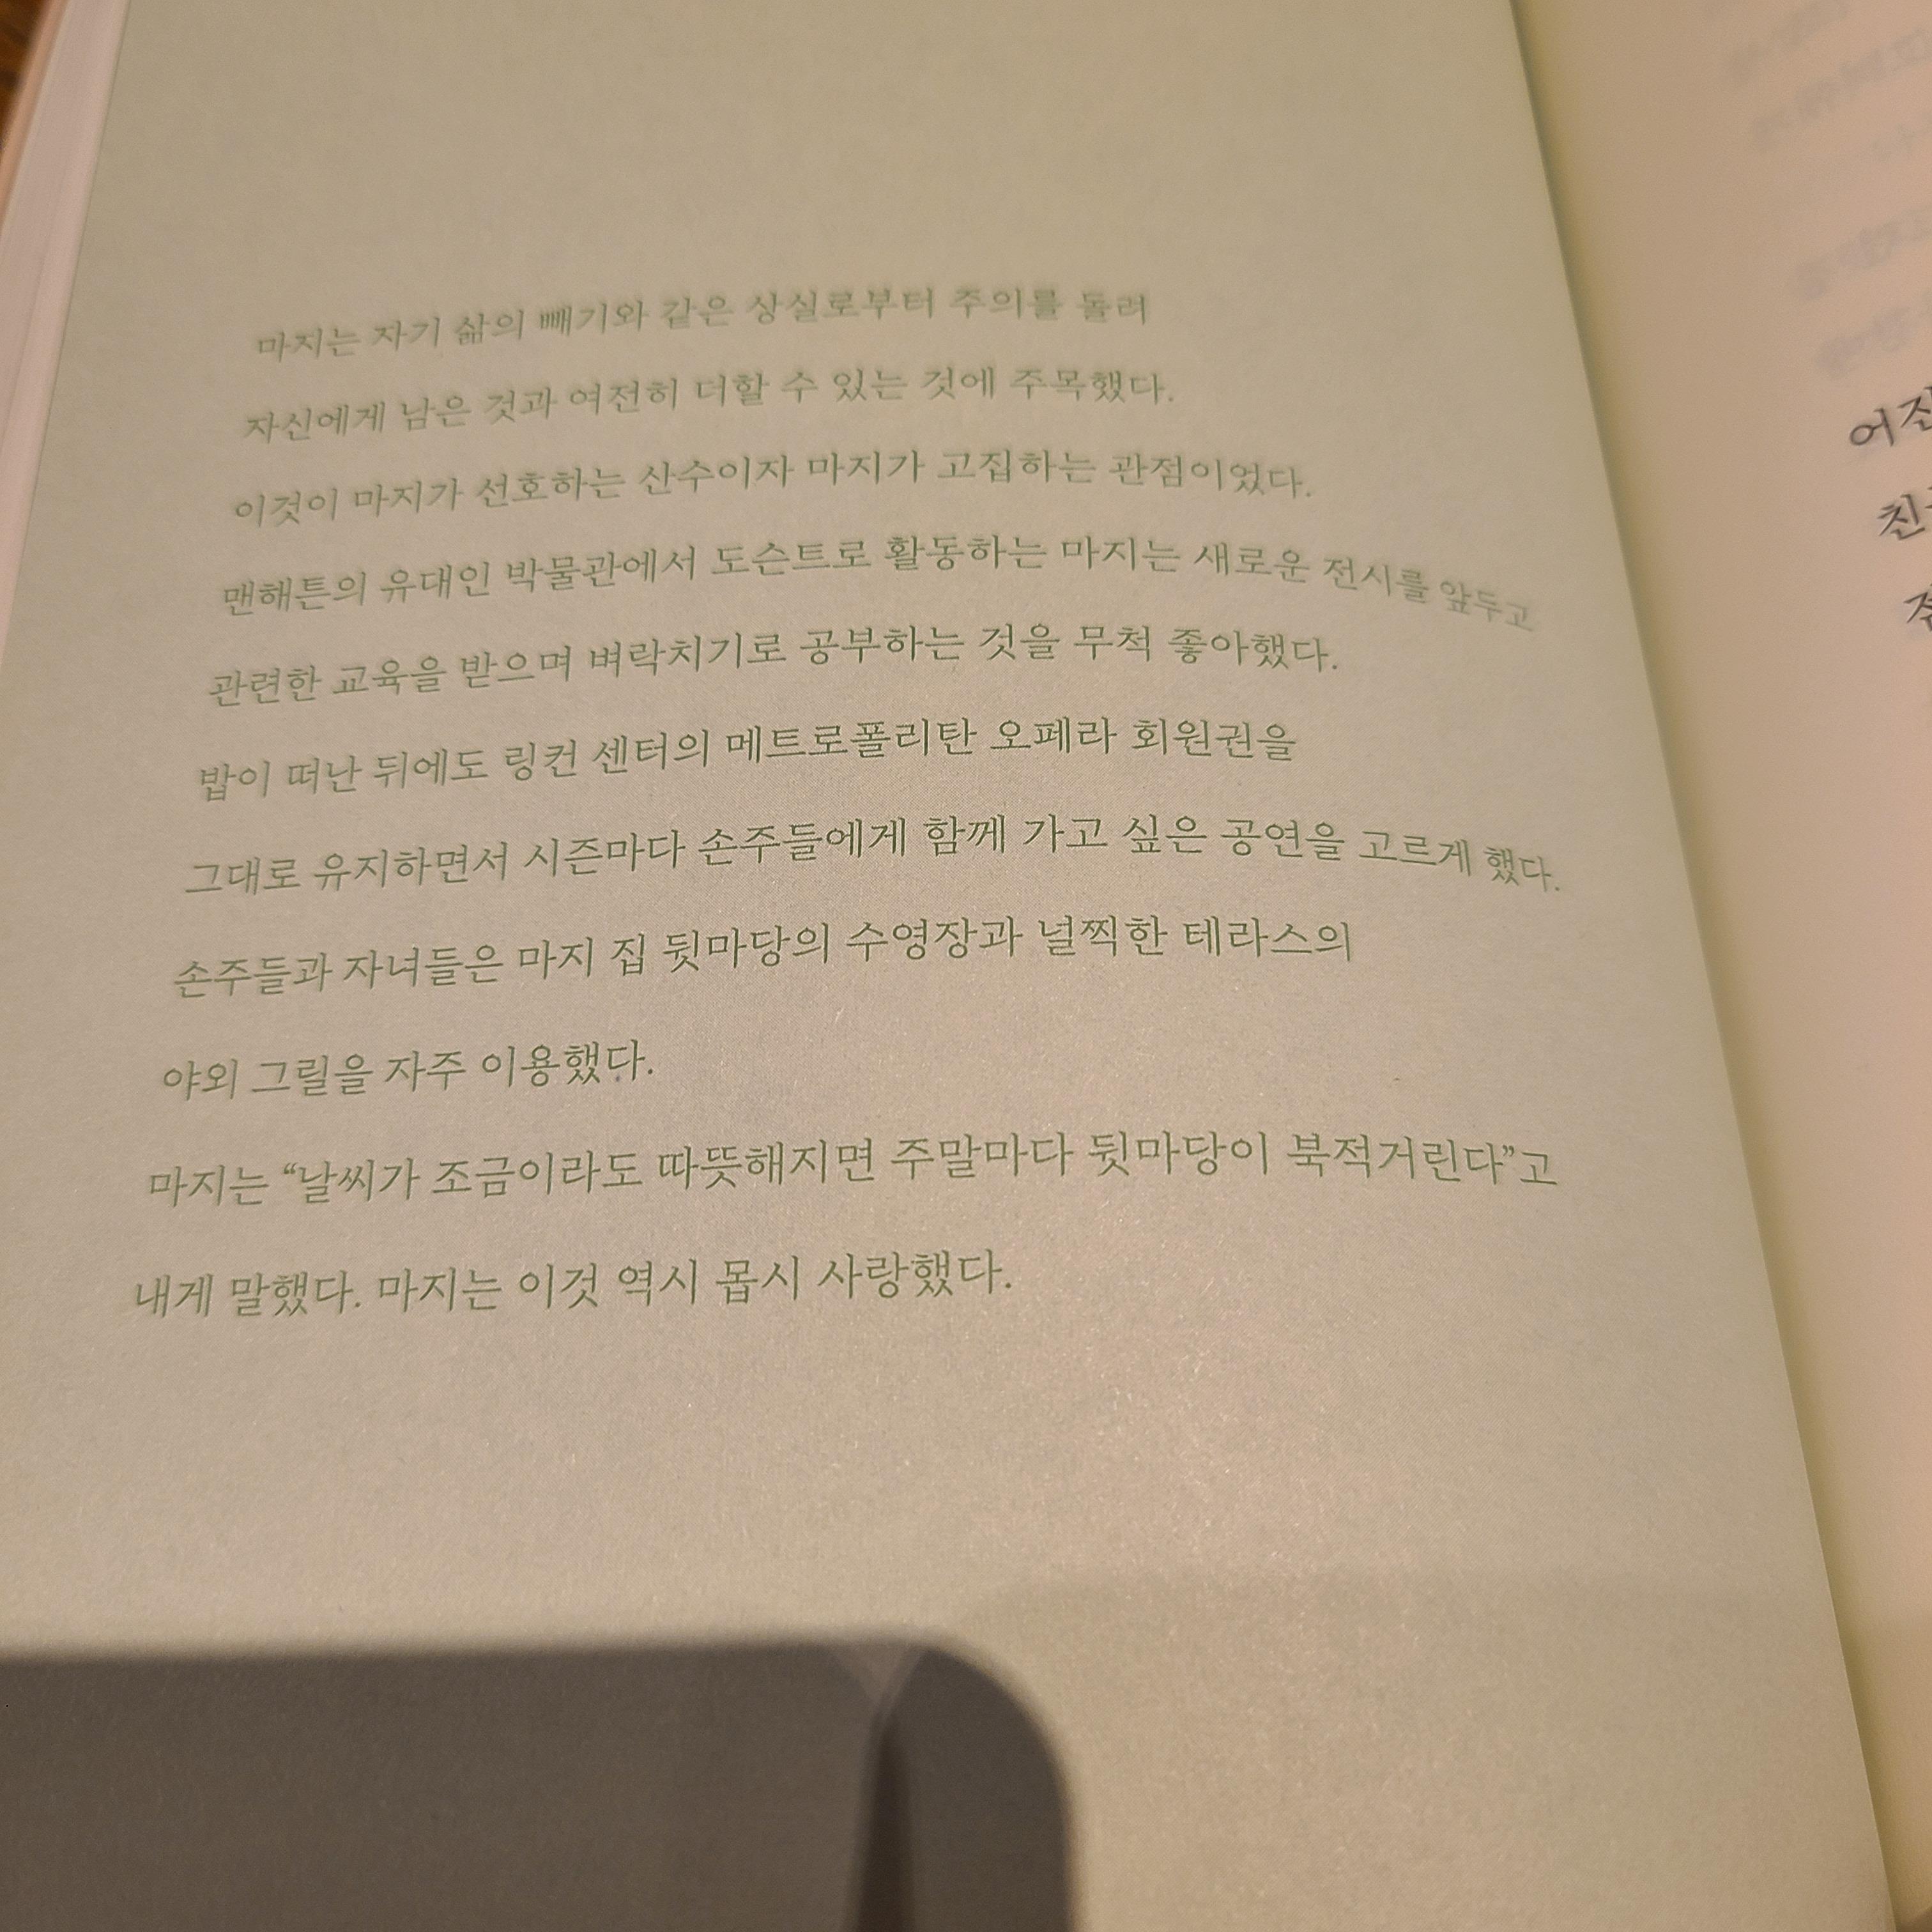 마지는 자기 삶의 빼기와 같은 상실로부터 주의를 돌려
자신에게 남은 것과 여전히 더할 수 있는 것에 주목했다.
이것이 마지가 선호하는 산수이자 마지가 고집하는 관점이었다.
맨해튼의 유대인 박물관에서 도슨트로 활동하는 마지는 새로운 전시를 앞두고
관련한 교육을 받으며 벼락치기로 공부하는 것을 무척 좋아했다.
밥이 떠난 뒤에도 링컨 센터의 메트로폴리탄 오페라 회원권을
그대로 유지하면서 시즌마다 손주들에게 함께 가고 싶은 공연을 고르게 했다.
손주들과 자녀들은 마지 집 뒷마당의 수영장과 널찍한 테라스의
야외 그릴을 자주 이용했다.
마지는 “날씨가 조금이라도 따뜻해지면 주말마다 뒷마당이 북적거린다”고
내게 말했다. 마지는 이것 역시 몹시 사랑했다.